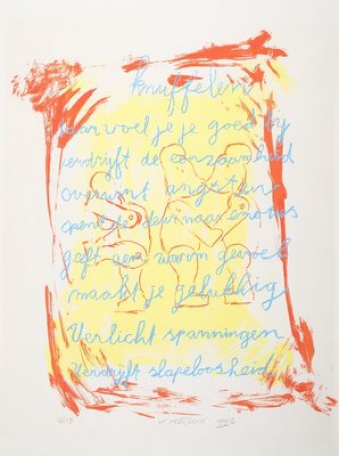 Knuffelen
daar voel je je goed by
verdrijft de eenzaamheid
overwint angsten
opent de deur naar emoties
geeft een warm gevoel
maakt je gelukkig
Verlicht spanningen
Verdrijft slapeloosheid
12/15
1995